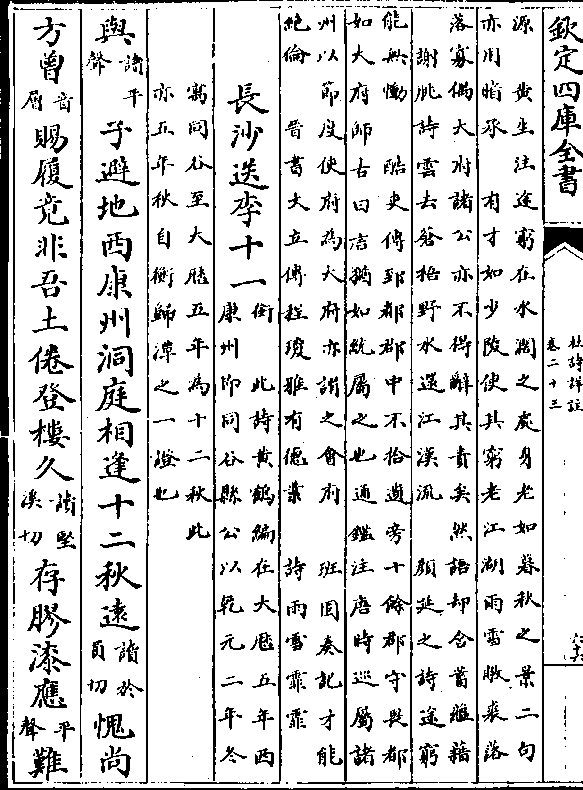 欽定四庫全書
杜詩詳註
卷二十三
源　黄生注途窮在水濶之處身老如暮秋之景二句
亦用暗承　有才如少陵使其窮老江湖雨雪敝裘落
落寡偶大府諸公亦不得辭其責矣然語却含蓄藴藉
謝朓詩雲去蒼梧野水還江漢流　顔延之詩途窮
能無慟　酷吏傳郅都郡中不拾遺旁十餘郡守畏都
如大府師古曰言猶如統屬之也通鑑注唐時巡屬諸
州以節度使府為大府亦謂之會府　班固奏記才能
絶倫　晉書大立傳程瓊雅有德業　詩雨雪霏霏
長沙送李十一
銜　此詩黄鶴編在大厯五年西
康州即同谷縣公以乾元二年冬
寓同谷至大厯五年為十二秋此
亦五年秋自衡歸潭之一證也
與
諸平
聲
子避地西康州洞庭相逢十二秋遠
讀於
員切
愧尚
方曾
音
層
賜履竞非吾土倦登樓久
讀堅
溪切
存膠漆應
平
聲
難